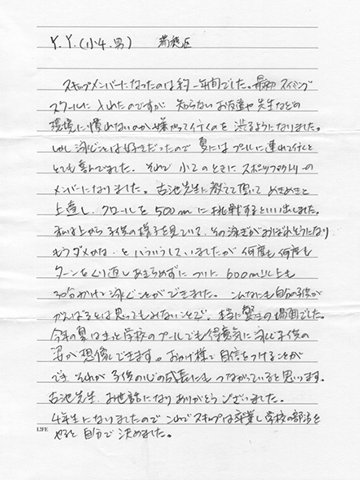 Y.Y.(小4.男)
スキップメンバーになったのは約一年前でした。最初スイミング
スクールに入れたのですが 知らないお友達や先生などの
環境に慣れないのか嫌がって行くのを渋るようになりました。
しかし泳ぐことは好きだったので夏にはプールに連れて行くと
とても喜んでました。それで小3のときにスポニックファミリーの
メンバーになりました。古池先生に教えて頂いて めきめきと
上達し、クロールを500mに挑戦するといい出しました。
私は上から子供の様子を見ていて、その泳ぎが おぼれそうになり
もうダメかな…といううしていましたが何度も何度も
ターンをくり返しあきらめずに ついに 600m以上も
30分かけて泳ぐことができました。こんなにも自分の子供が
がんばるとは思ってもみないことで、本当に驚きの場面でした。
今年の夏はきっと学校のプールでも得意気に泳ぐ子供の
姿が想像できます。おかげ様で自信をつけることが
でき それが子供の心の成長にも つながっていると思います。
古池先生、お世話になりありがとうございました。
4年生になりましたので これでスキップは卒業し学校の部活を
やると自分で決めました。
LIFE